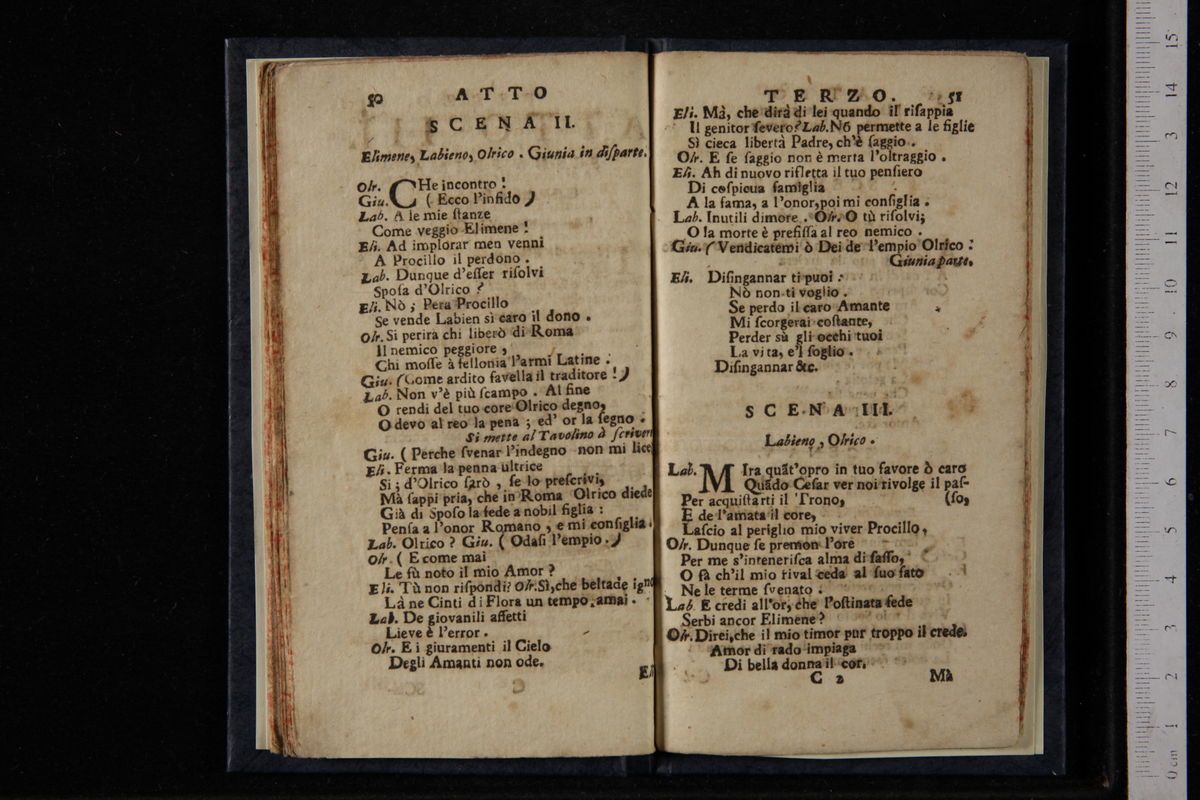 50 ATTO
SCENA II.
Elimene, Labieno, Olrico. Giunia in disparte.
Olr. CHe incontro!
Giu. (Ecco l'infido)
Lab. A le mie stanze
Come veggio Elimene!
Eli. Ad implorar men venni
A Procillo il perdono.
Lab. Dunque d'esser risolvi
Sposa d'Olrico?
Eli. Nò; Pera Procillo
Se vende Labien sì caro il dono.
Olr. Si perirà chi liberò di Roma
Il nemico peggiore,
Chi mosse à fellonia l'armi Latine.
Giu. (Come ardito favella il traditore!)
Lab. Non v'è più scampo. Al fine
O rendi del tuo core Olrico degno,
O devo al reo la pena; ed' or la segno.
Si mette al Tavolino à scriver
Giu. (Perche svenar l'indegno non mi lice
Eli. Ferma la penna ultrice
Si; d'Olrico sarò, se lo prescrivi,
Mà sappi pria, che in Roma Olrico diede
Già di Sposo la fede a nobil figlia:
Pensa a l'onor Romano, e mi consiglia.
Lab. Olrico? Giu. (Odasi l'empio.)
Olr. (E come mai
Le fù noto il mio Amor?
Eli. Tù non rispondi? Olr. Sì, che beltade igno
Là ne Cinti di Flora un tempo amai.
Lab. De giovanili affetti
Lieve è l'error.
Olr. E i giuramenti il Cielo
Degli Amanti non ode.
Eli
TERZO. 51
Eli. Mà, che dirà di lei quando il risappia
Il genitor severo? Lab. Nõ permette a le figlie
Sì cieca libertà Padre, ch'è saggio.
Olr. E se saggio non è merta l'oltraggio.
Eli. Ah di nuovo rifletta il tuo pensiero
Di cospicua famiglia
A la fama, a l'onor, poi mi consiglia.
Lab. Inutili dimore. Olr. O tù risolvi;
O la morte è prefissa al reo nemico.
Giu. (Vendicatemi ò Dei de l'empio Olrico:
Giunia parte.
Eli. Disingannar ti puoi:
Nò non ti voglio.
Se perdo il caro Amante
Mi scorgerai costante,
Perder sù gli occhi tuoi
La vita, e'l soglio.
Disingannar &c.
SCENA III.
Labieno, Olrico.
Lab. MIra quãt'opro in tuo favore ò caro
Quãdo Cesar ver noi rivolge il pas-
Per acquistarti il Trono, (so,
E de l'amata il core,
Lascio al periglio mio viver Procillo,
Olr. Dunque se premon l'ore
Per me s'intenerisca alma di sasso,
O fà ch'il mio rival ceda al suo fato
Ne le terme svenato.
Lab. E credi all'or, che l'ostinata fede
Serbi ancor Elimene?
Olr. Direi, che il mio timor pur troppo il crede.
Amor di rado impiaga
Di bella donna il cor.
C 2 Mà